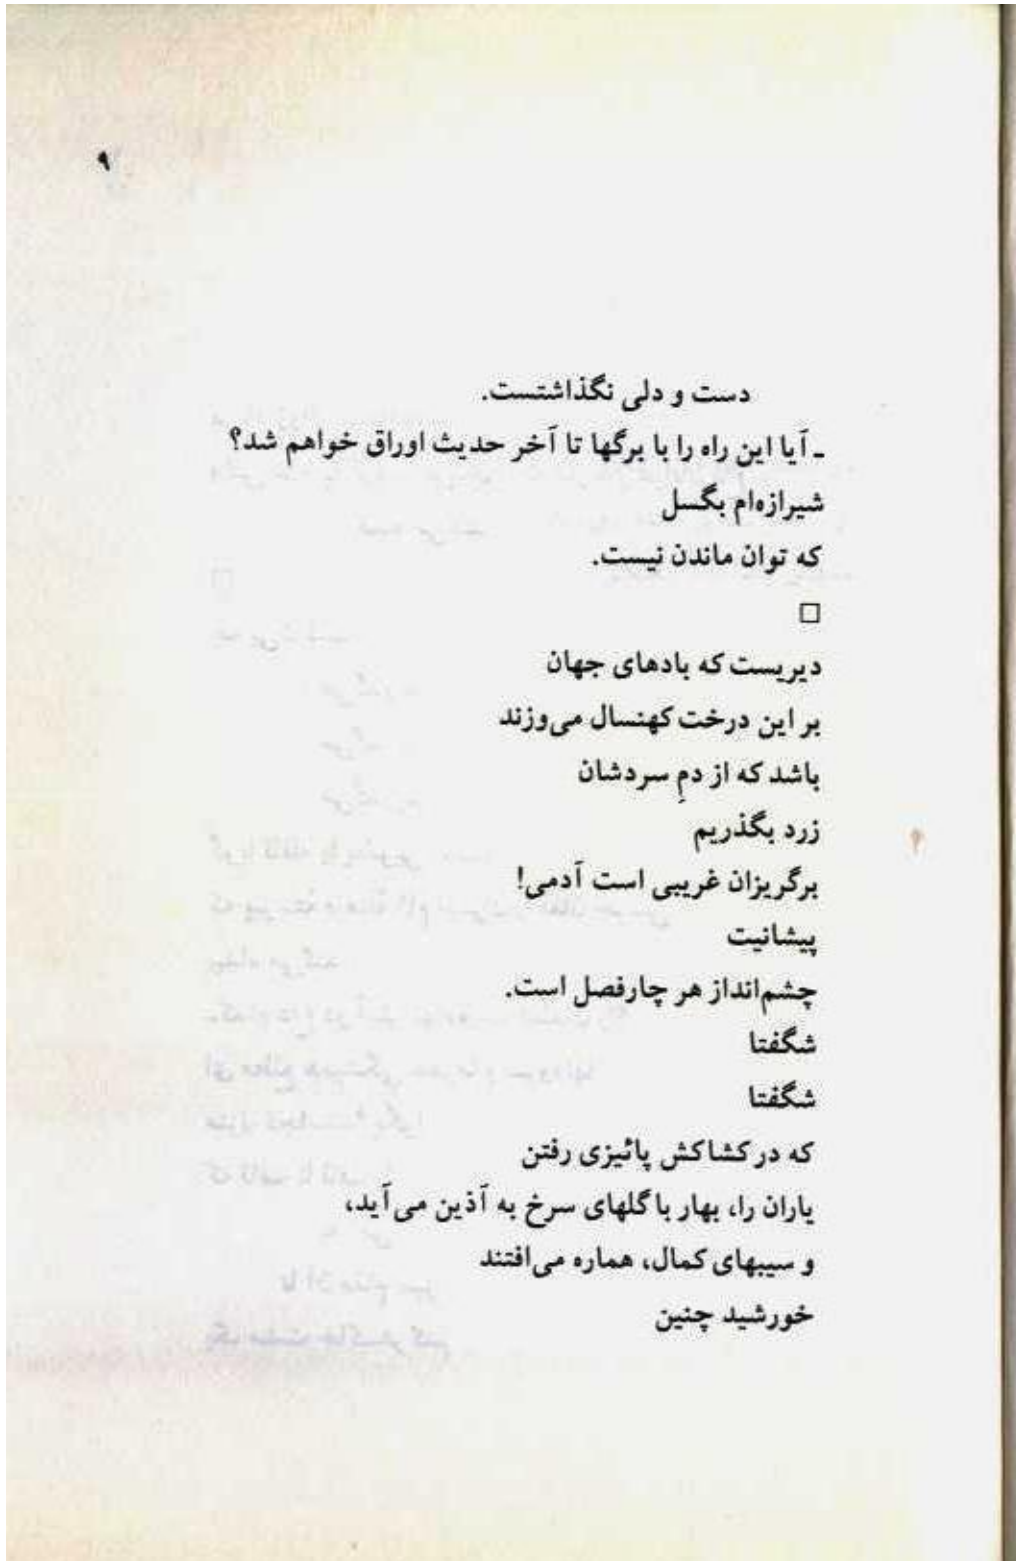 ۹
دست و دلی نگذاشتست.
ـ آیا این راه را با برگها تا آخر حدیث اوراق خواهم شد؟
شیرازه‌ام بگسل
که توان ماندن نیست.
□
دیریست که بادهای جهان
بر این درخت کهنسال می‌وزند
باشد که از دمِ سردشان
زرد بگذریم
برگریزان غریبی است آدمی!
پیشانیت
چشم‌انداز هر چارفصل است.
شگفتا
شگفتا
که در کشاکش پائیزی رفتن
یاران را، بهار با گلهای سرخ به آذین می‌آید،
و سیبهای کمال، هماره می‌افتند
خورشید چنین